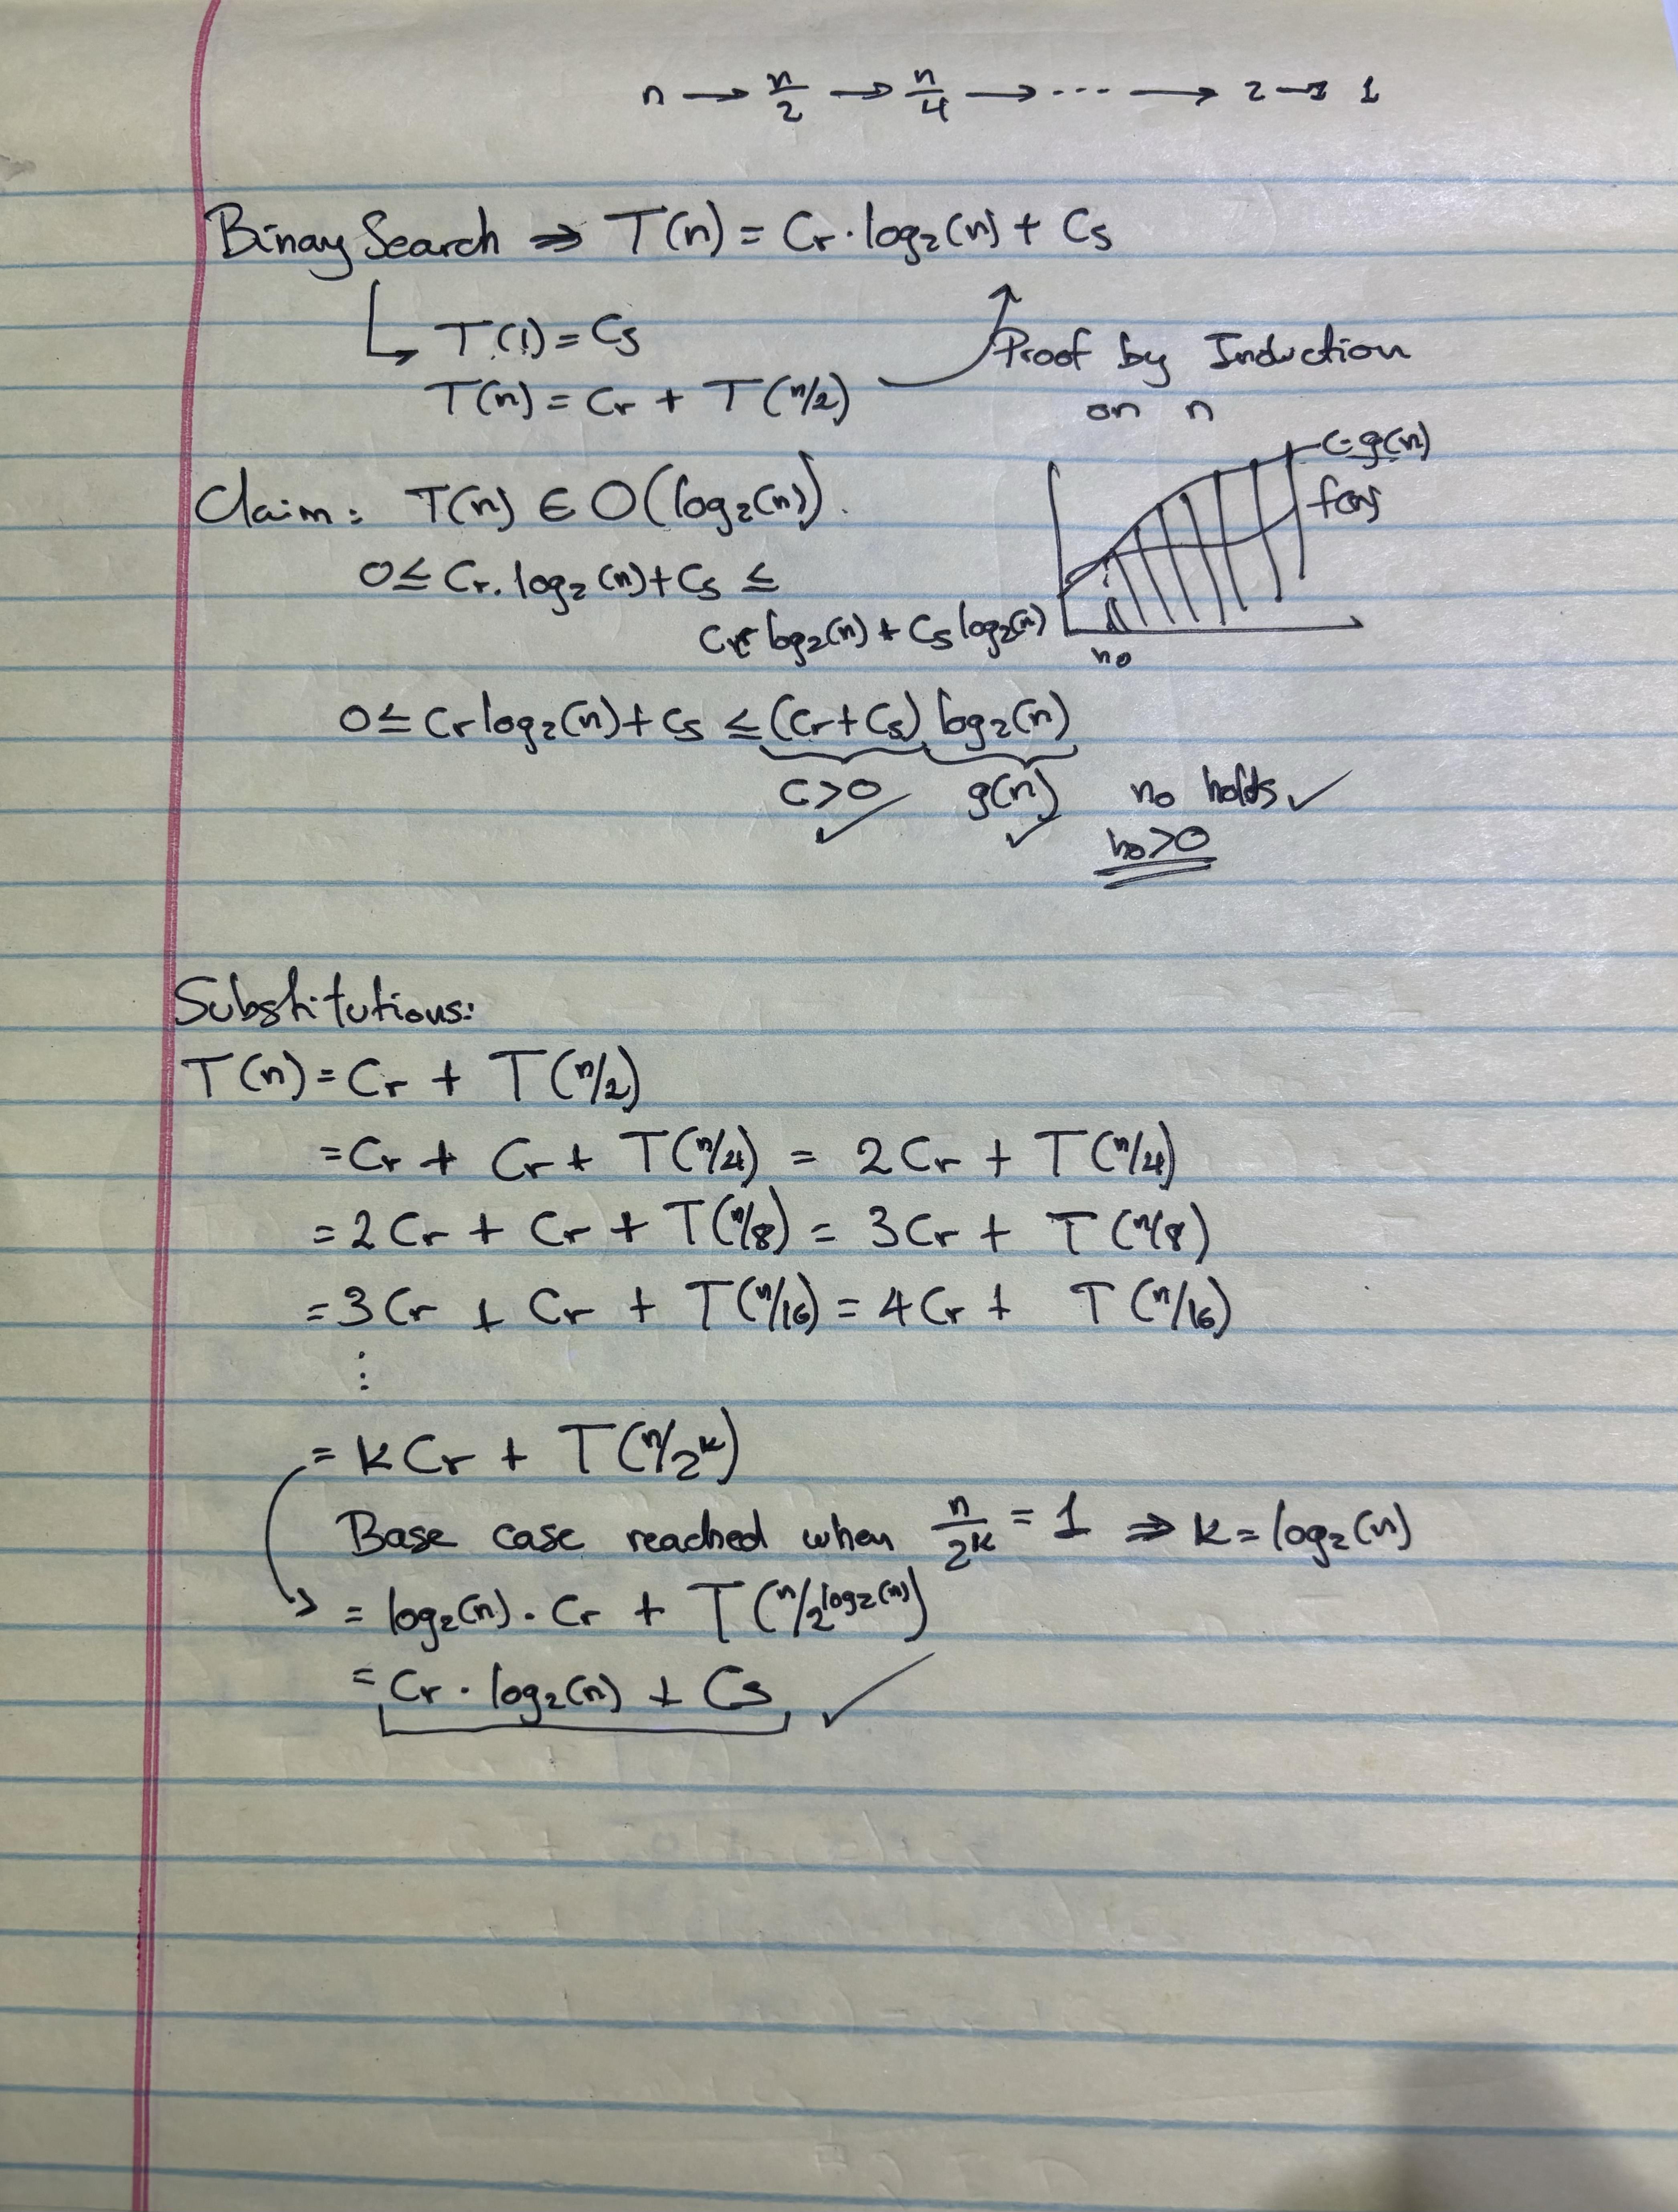 n → n/2 → n/4 → ... → 2 → 1
Binay Search ⇒ T(n) = Cr · log₂(n) + Cs
T(1) = Cs
T(n) = Cr + T(n/2)
Proof by Induction
on n
Claim: T(n) ∈ O(log₂(n)).
c·g(n)
f(n)
n₀
0 ≤ Cr. log₂(n) + Cs ≤
Cr log₂(n) + Cs log₂(n)
0 ≤ Cr log₂(n) + Cs ≤ (Cr + Cs) log₂(n)
C>0 ✓ g(n) ✓ n₀ holds ✓
n₀>0
Substitutions:
T(n) = Cr + T(n/2)
= Cr + Cr + T(n/4) = 2Cr + T(n/4)
= 2Cr + Cr + T(n/8) = 3Cr + T(n/8)
= 3Cr + Cr + T(n/16) = 4Cr + T(n/16)
⋮
= kCr + T(n/2ᵏ)
Base case reached when n/2ᵏ = 1 ⇒ k = log₂(n)
= log₂(n) · Cr + T(n/2^log₂(n))
= Cr · log₂(n) + Cs ✓